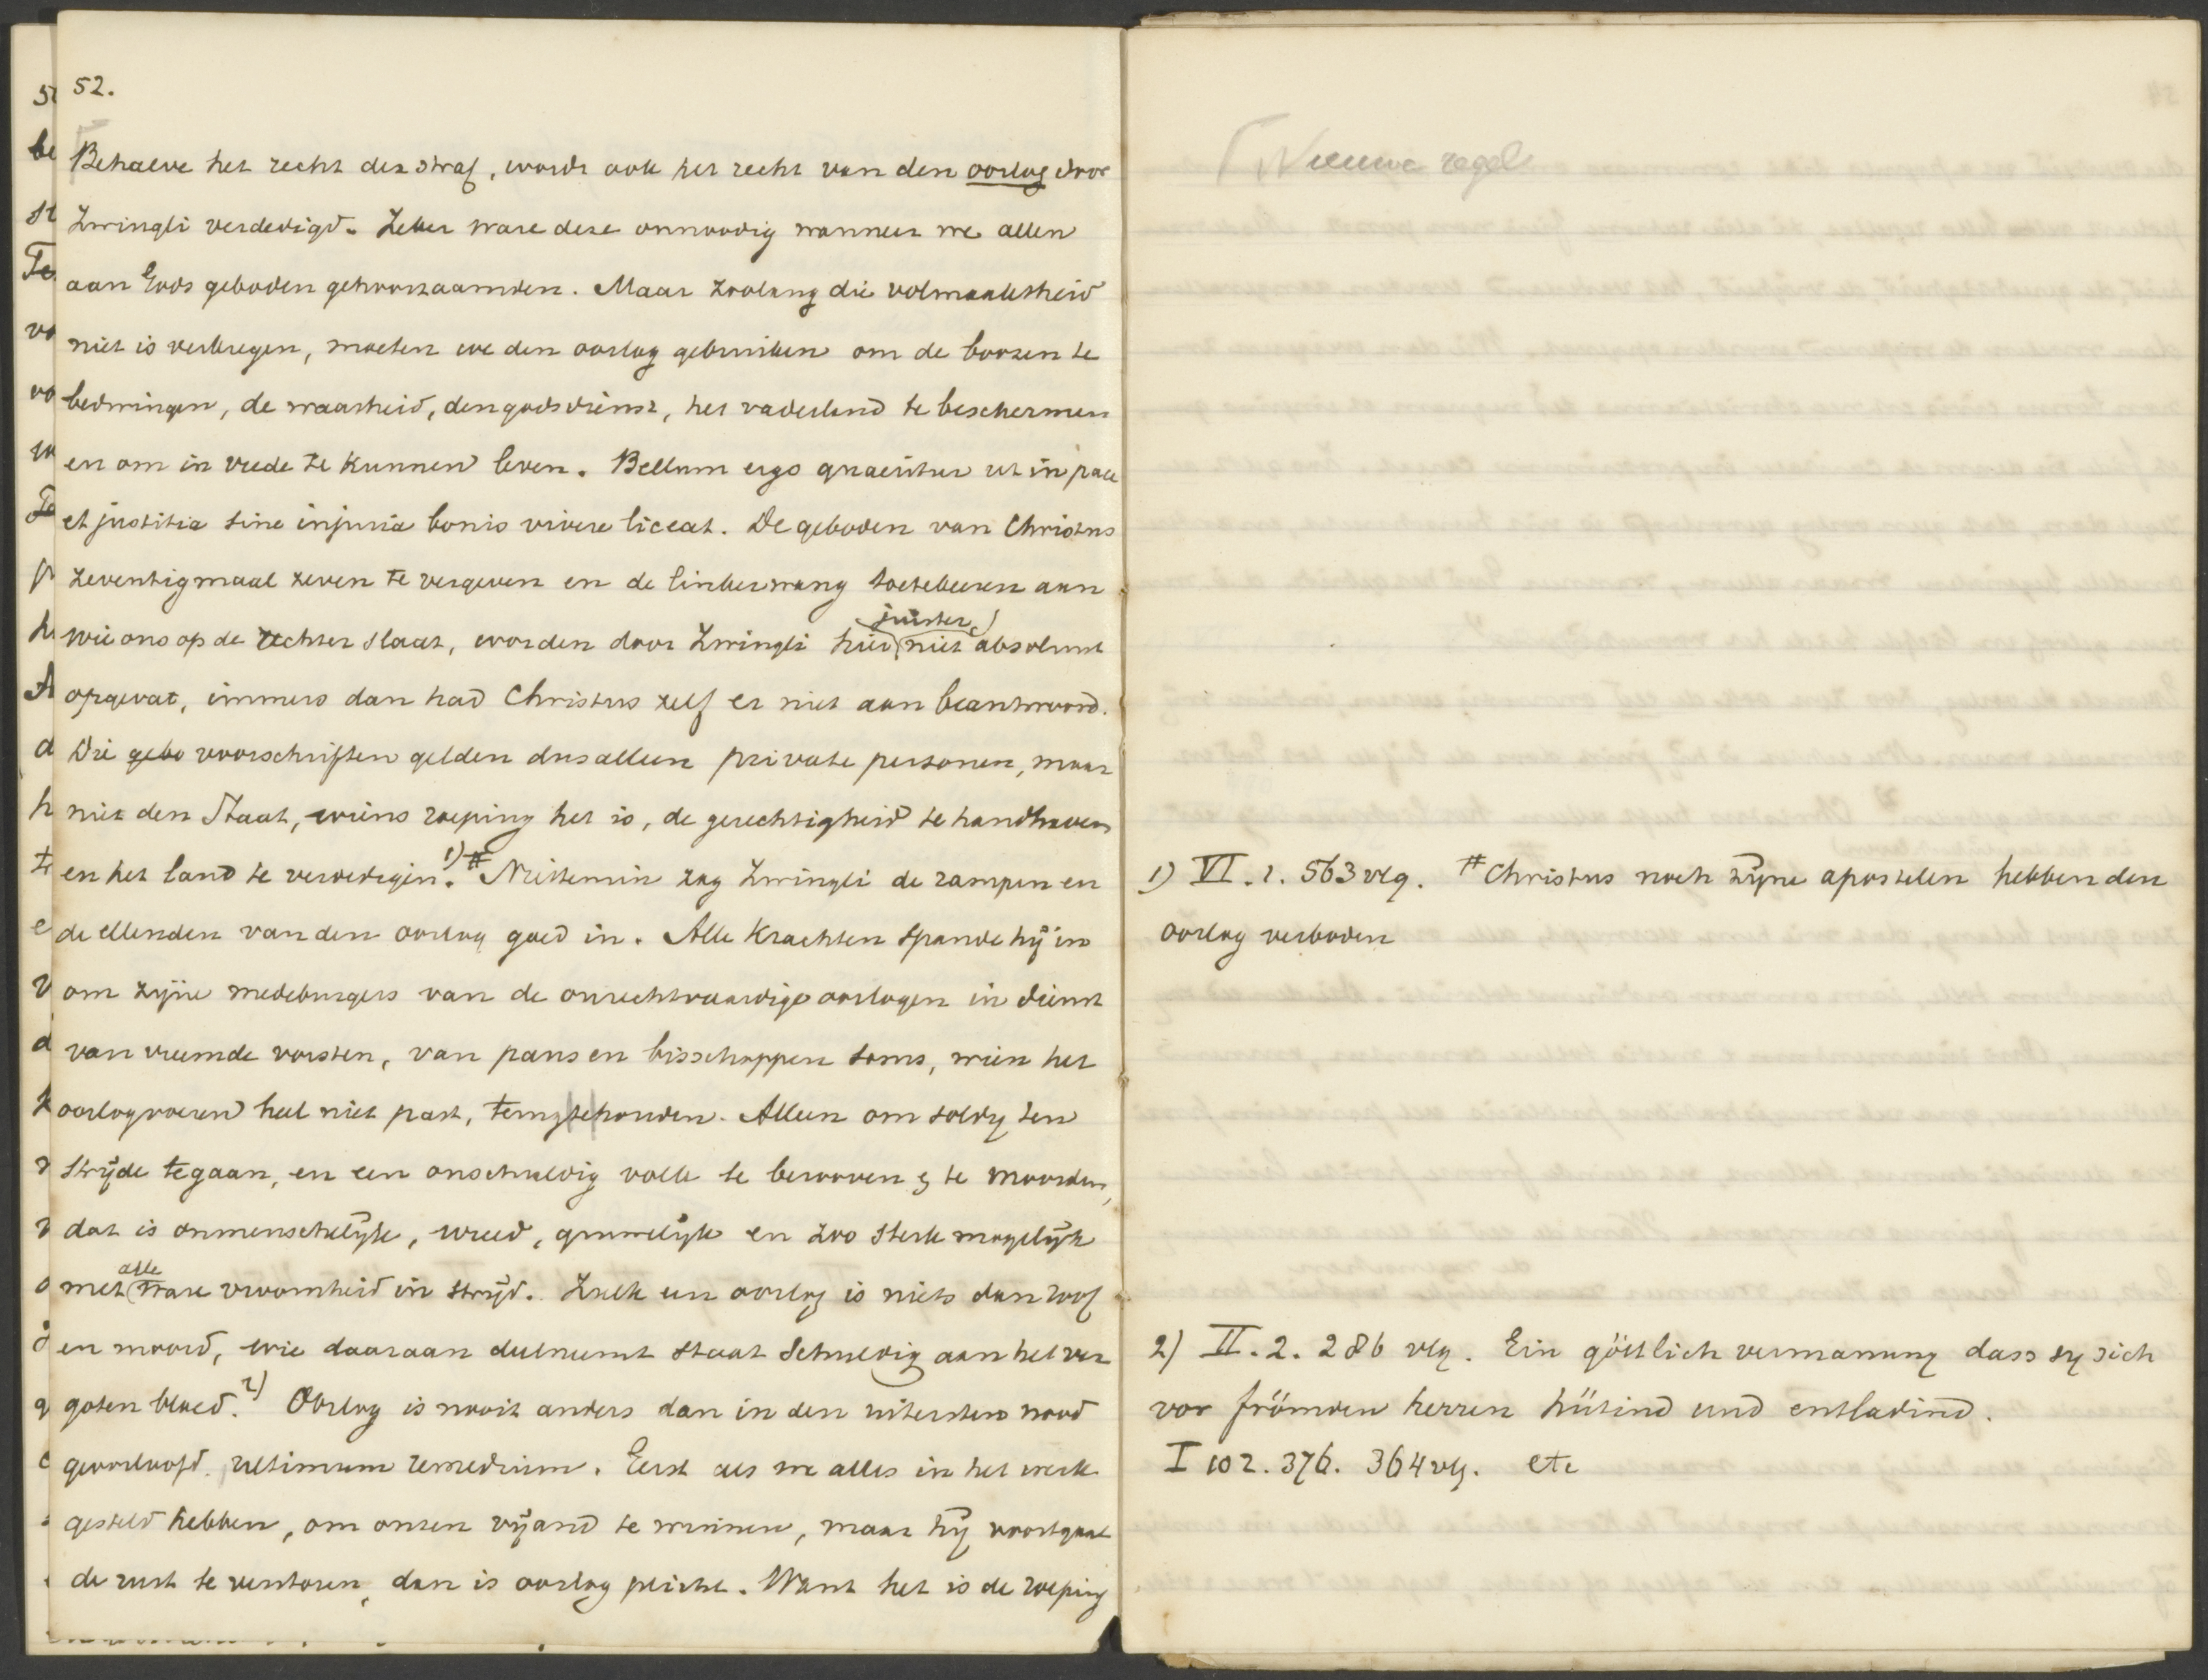 52.
Behalve het recht der straf, wordt ook het recht van den oorlog door
Zwingli verdedigd. Zeker ware deze onnoodig wanneer we allen
aan Gods geboden gehoorzaamden. Maar zoolang die volmaaktheid
niet is verkregen, moeten we den oorlog gebruiken om de boozen te
bedwingen, de waarheid, den godsdienst, het vaderland te beschermen
en om in vrede te kunnen leven. Bellum ergo quaeritur ut in pace
et justitia sine injuria bonis vivere liceat. De geboden van Christus
zeventigmaal zeven te vergeven en de linkerwang toetekeeren aan
juister
wie ons op de rechter slaat, worden door Zwingli hier niet absoluut
opgevat, immers dan had Christus zelf er niet aan beantwoord.
Die gebo voorschriften gelden dus alleen private personen, maar
niet den Staat, wiens roeping het is, de gerechtigheid te handhaven
en het land te verdedigen. 1) # Niettemin zag Zwingli de rampen en
de ellenden van den oorlog goed in. Alle krachten spande hij in
om zijne medeburgers van de onrechtvaardige oorlogen in dienst
van vreemde vorsten, van paus en bisschoppen soms, wien het
oorlogvoeren heel niet past, terugtehouden. Alleen om soldij ten
strijde tegaan, en een onschuldig volk te berooven & te moorden,
dat is onmenschelijk, wreed, gruwelijk en zoo sterk mogelijk
alle
met ware vroomheid in strijd. Zulk een oorlog is niets dan roof
en moord, wie daaraan deelneemt staat schuldig aan het ver
goten bloed. 2) Oorlog is nooit anders dan in den uitersten nood
geoorloofd, ultimum remedium. Eerst als we alles in het werk
gesteld hebben, om onzen vijand te winnen, maar hij voortgaat
de rust te verstoren, dan is oorlog plicht. Want het is de roeping
Nieuwe regel
1) VI. 1. 563 vlg. # Christus noch zijne apostelen hebben den
oorlog verboden
2) II. 2. 286 vlg. Ein göttlich vermanung dass sy sich
vor frömden herren hütind und entladind.
I 102. 376. 364 vlg. etc